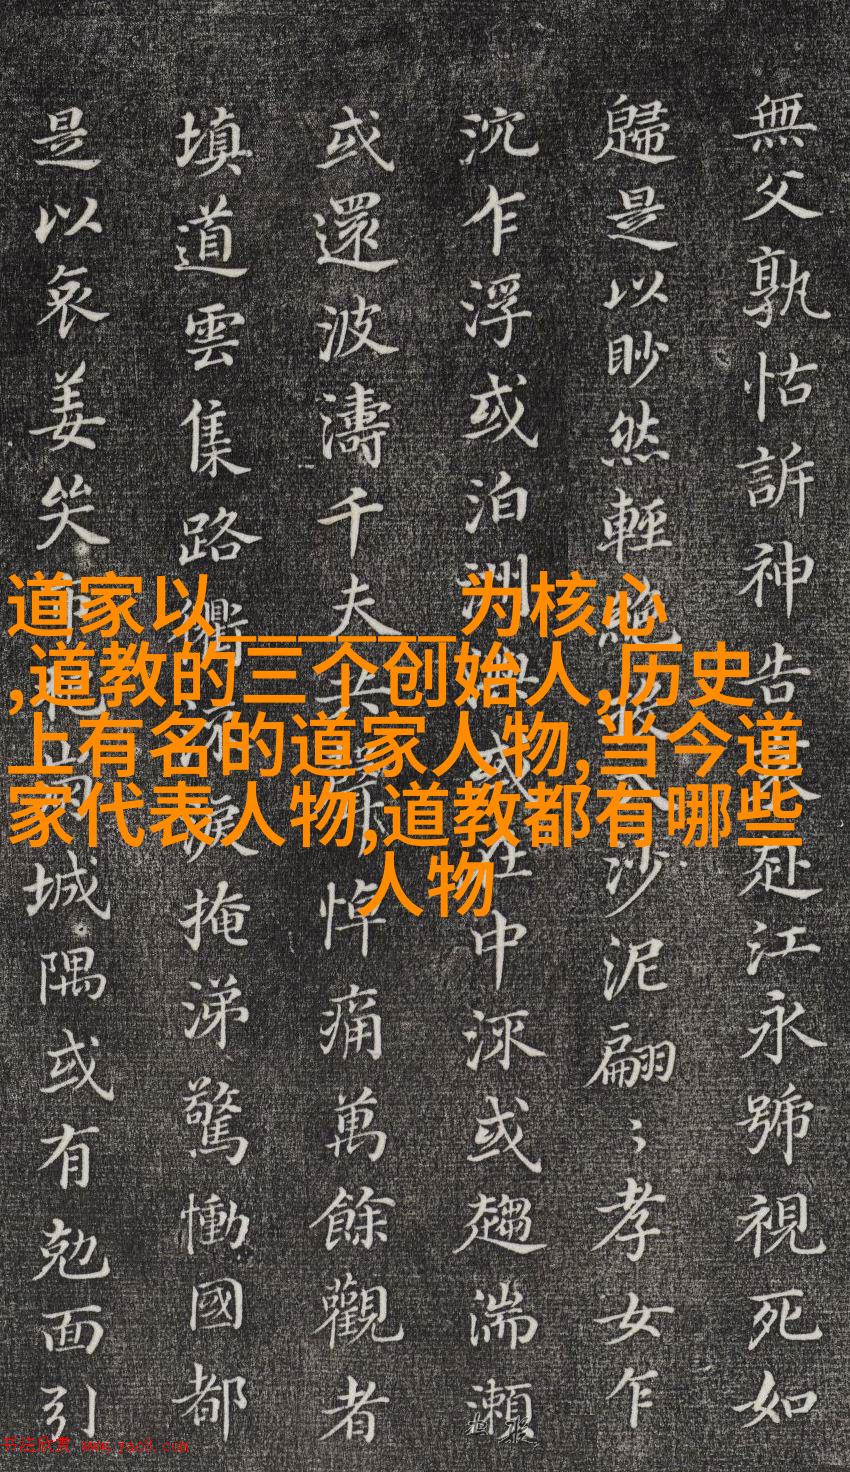 道家以_______为核心
,道教的三个创始人,历史
上有名的道家人物,当今道
家代表人物,道教都有哪些
人物
無父孰怙訴神告哀赴江永號視死如
歸是以眇然輕絕投入沙泥翩〻孝女乍
沉乍浮或泊洲嶼或在中流或趨湍瀨
或還波濤千夫失聲悼痛萬餘觀者
填道雲集路衢流淚掩涕驚慟國都
是以哀姜哭市杞崩城隅或有勀面引
书法欣赏 www.yac8.com